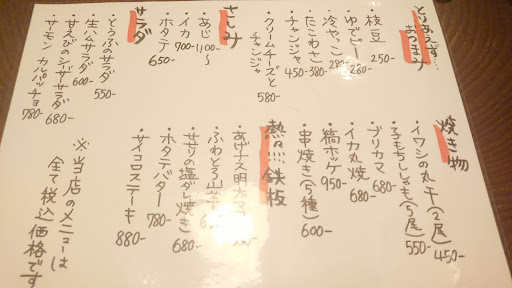 とりあえず…
おつまみ
・枝豆 250-
・ゆでピー 260-
・冷やっこ 280-
・たこわさ 380-
・チャンジャ 450-
・クリームチーズと
チャンジャ 580-
さしみ
・あじ 1,100〜
・イカ 700-
・ホタテ 650-
サラダ
・とうふのサラダ 550-
・生ハムサラダ 600-
・甘えびのシーザーサラダ 680-
・サーモン カルパッチョ 780-
焼き物
・イワシの丸干(2尾) 450-
・子もちししゃも(5尾) 550-
・ブリカマ 680-
・イカ丸焼 680-
・縞ホッケ 950-
・串焼き(5種) 600-
熱々!!! 鉄板
・あげナス明太
・ふわとろ山芋
・サザリの塩ダレ焼き 680-
・ホタテバター 780-
・サイコロステーキ 880-
※当店のメニューは
全て税込価格です